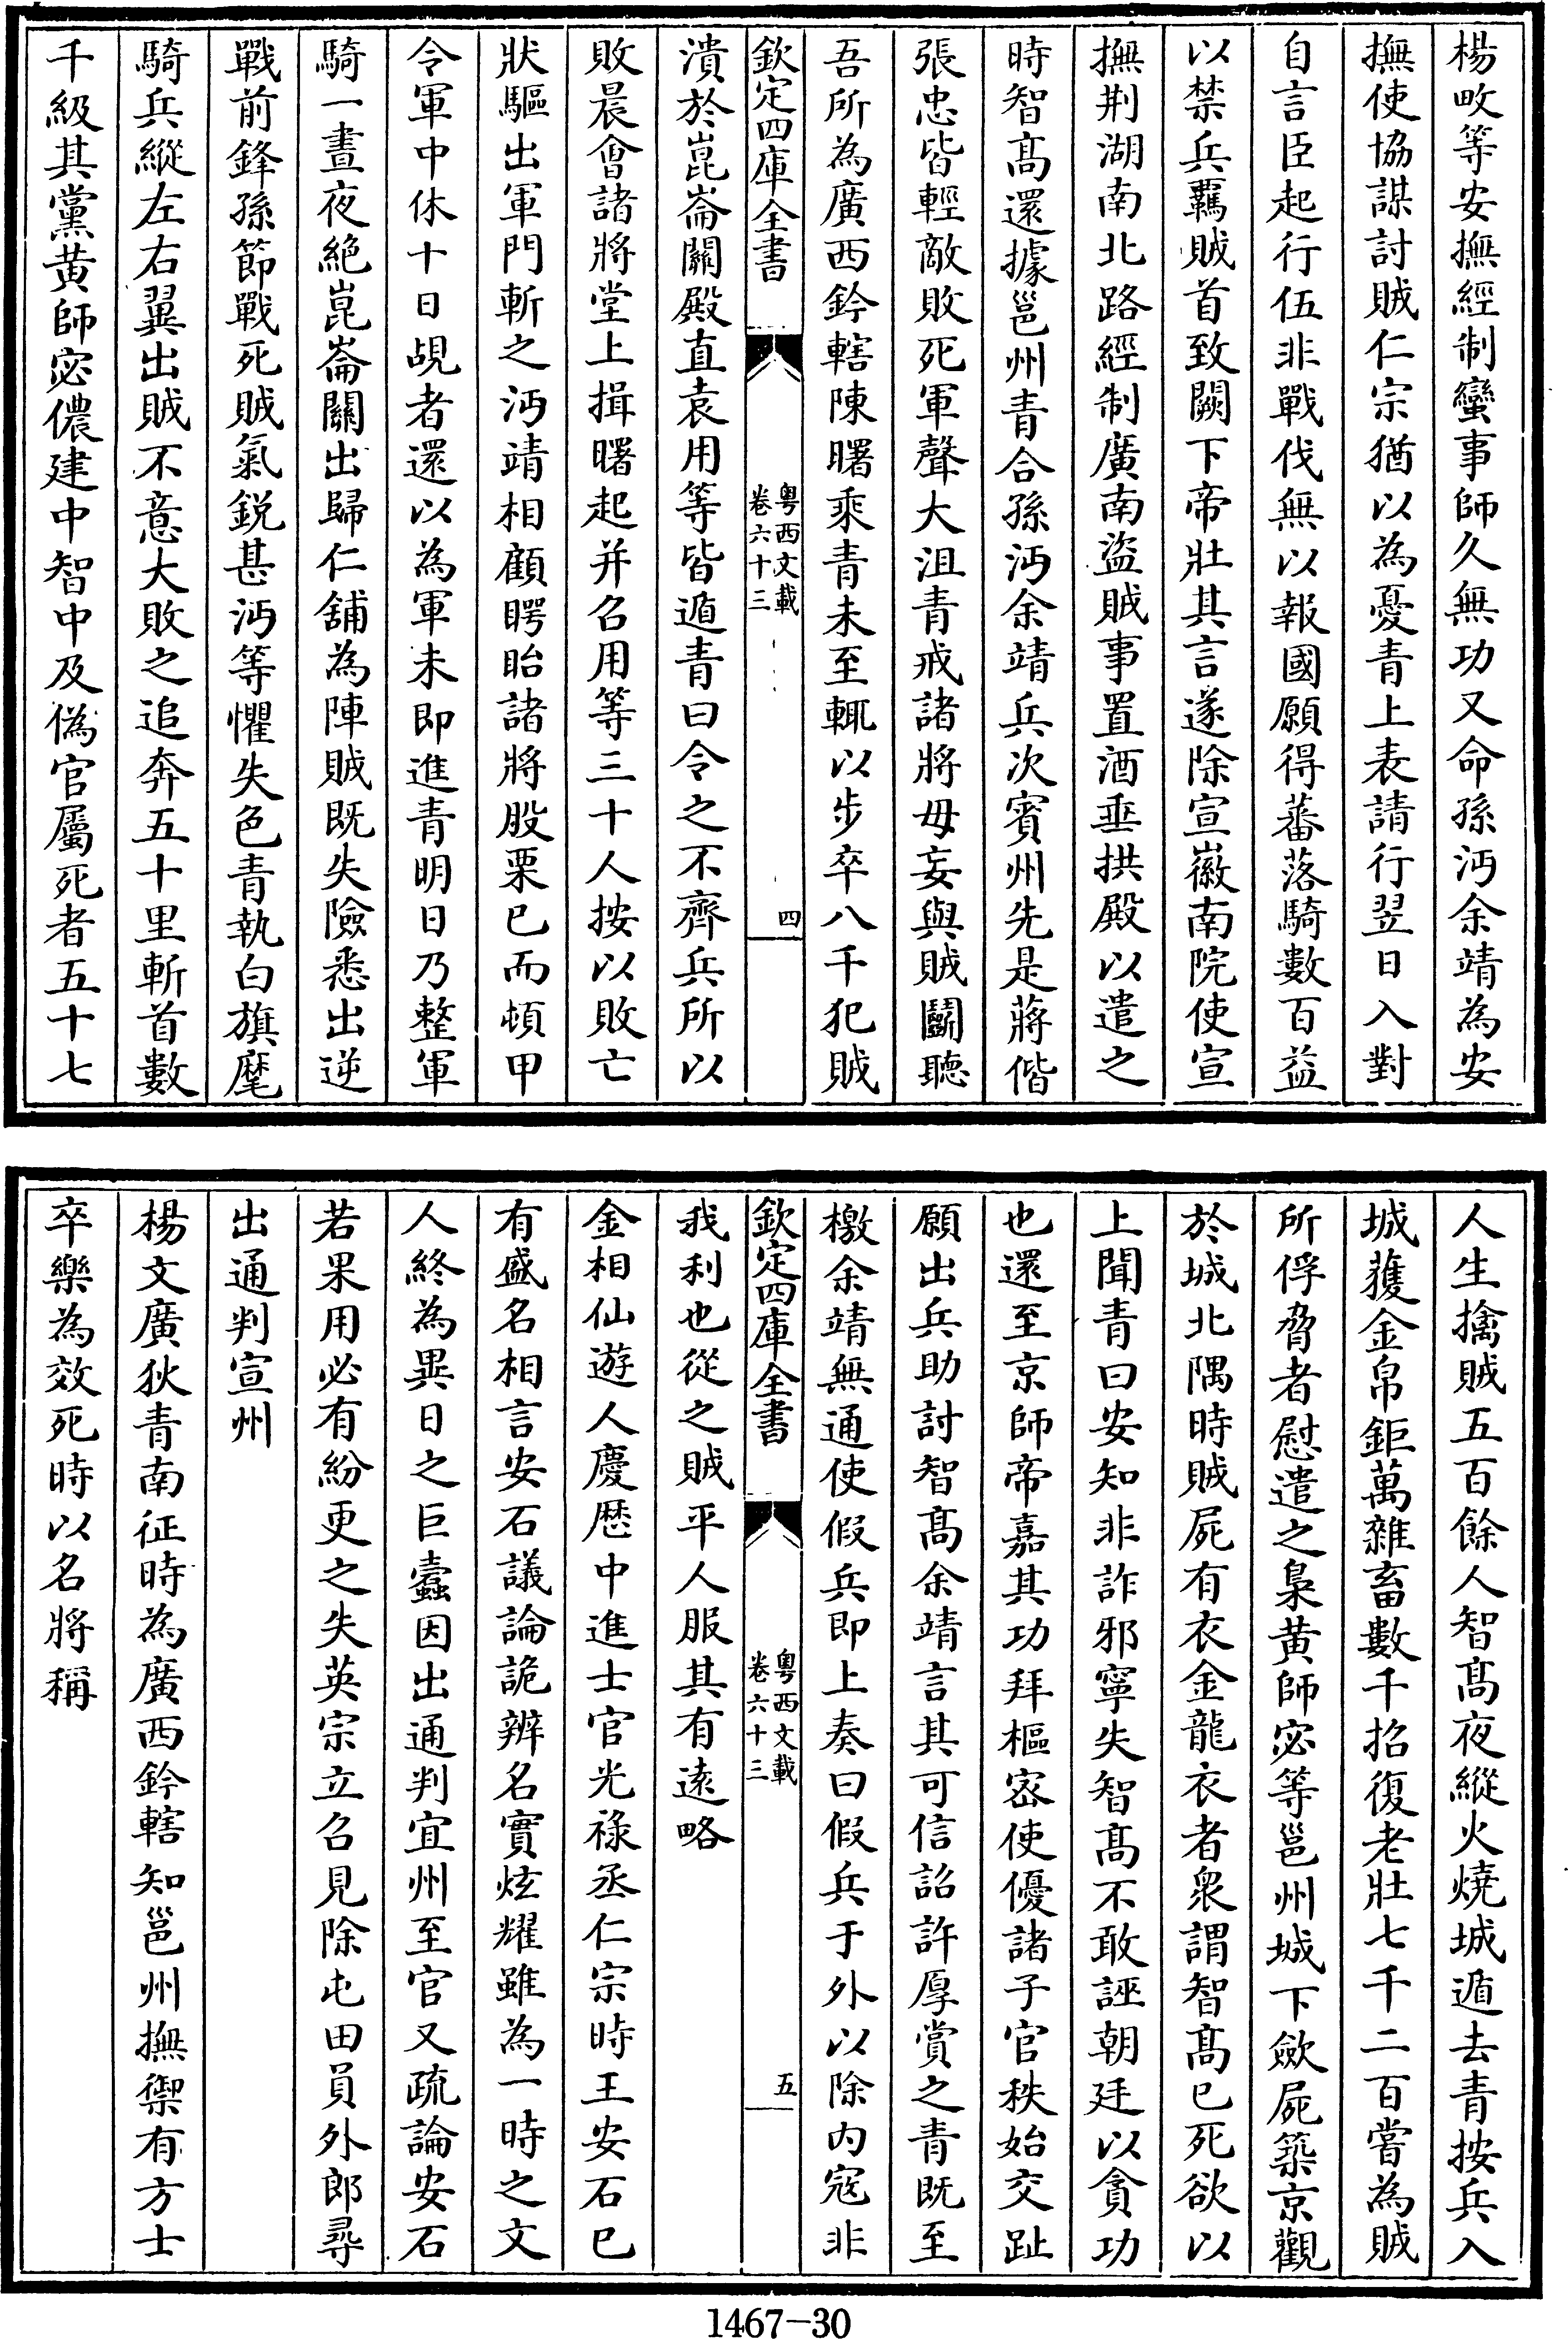 楊畋等安撫經制蠻事師久無功又命孫沔余靖為安
撫使協謀討賊仁宗猶以為憂青上表請行翌日入對
自言臣起行伍非戰伐無以報國願得蕃落騎數百益
以禁兵羈賊首致闕下帝壯其言遂除宣徽南院使宣
撫荆湖南北路經制廣南盜賊事置酒垂拱殿以遣之
時智髙還據邕州青合孫沔余靖兵次賓州先是蔣偕
張忠皆輕敵敗死軍聲大沮青戒諸將毋妄與賊鬬聽
吾所為廣西鈐轄陳曙乘青未至輒以步卒八千犯賊
欽定四庫全書
粤西文載
卷六十三
四
潰於崑崙關殿直袁用等皆遁青曰令之不齊兵所以
敗晨會諸將堂上揖曙起并召用等三十人按以敗亡
狀驅出軍門斬之沔靖相顧睚眙諸將股栗已而頓甲
令軍中休十日覘者還以為軍未即進青明日乃整軍
騎一晝夜絶崑崙關出歸仁舖為陣賊既失險悉出逆
戰前鋒孫節戰死賊氣鋭甚沔等懼失色青執白旗麾
騎兵縱左右翼出賊不意大敗之追奔五十里斬首數
千級其黨黄師宓儂建中智中及偽官屬死者五十七
人生擒賊五百餘人智髙夜縱火燒城遁去青按兵入
城獲金帛鉅萬雜畜數千招復老壯七千二百嘗為賊
所俘脅者慰遣之梟黄師宓等邕州城下歛屍築京觀
於城北隅時賊屍有衣金龍衣者衆謂智髙已死欲以
上聞青曰安知非詐邪寧失智髙不敢誣朝廷以貪功
也還至京師帝嘉其功拜樞宻使優諸子官秩始交趾
願出兵助討智髙余靖言其可信詔許厚賞之青既至
檄余靖無通使假兵即上奏曰假兵于外以除内寇非
欽定四庫全書
粤西文載
卷六十三
五
我利也從之賊平人服其有逺略
金相仙遊人慶厯中進士官光祿丞仁宗時王安石已
有盛名相言安石議論詭辨名實炫耀雖為一時之文
人終為異日之巨蠧因出通判宜州至官又疏論安石
若果用必有紛更之失英宗立召見除屯田員外郎尋
出通判宣州
楊文廣狄青南征時為廣西鈐轄知邕州撫禦有方士
卒樂為效死時以名將稱
1467-30